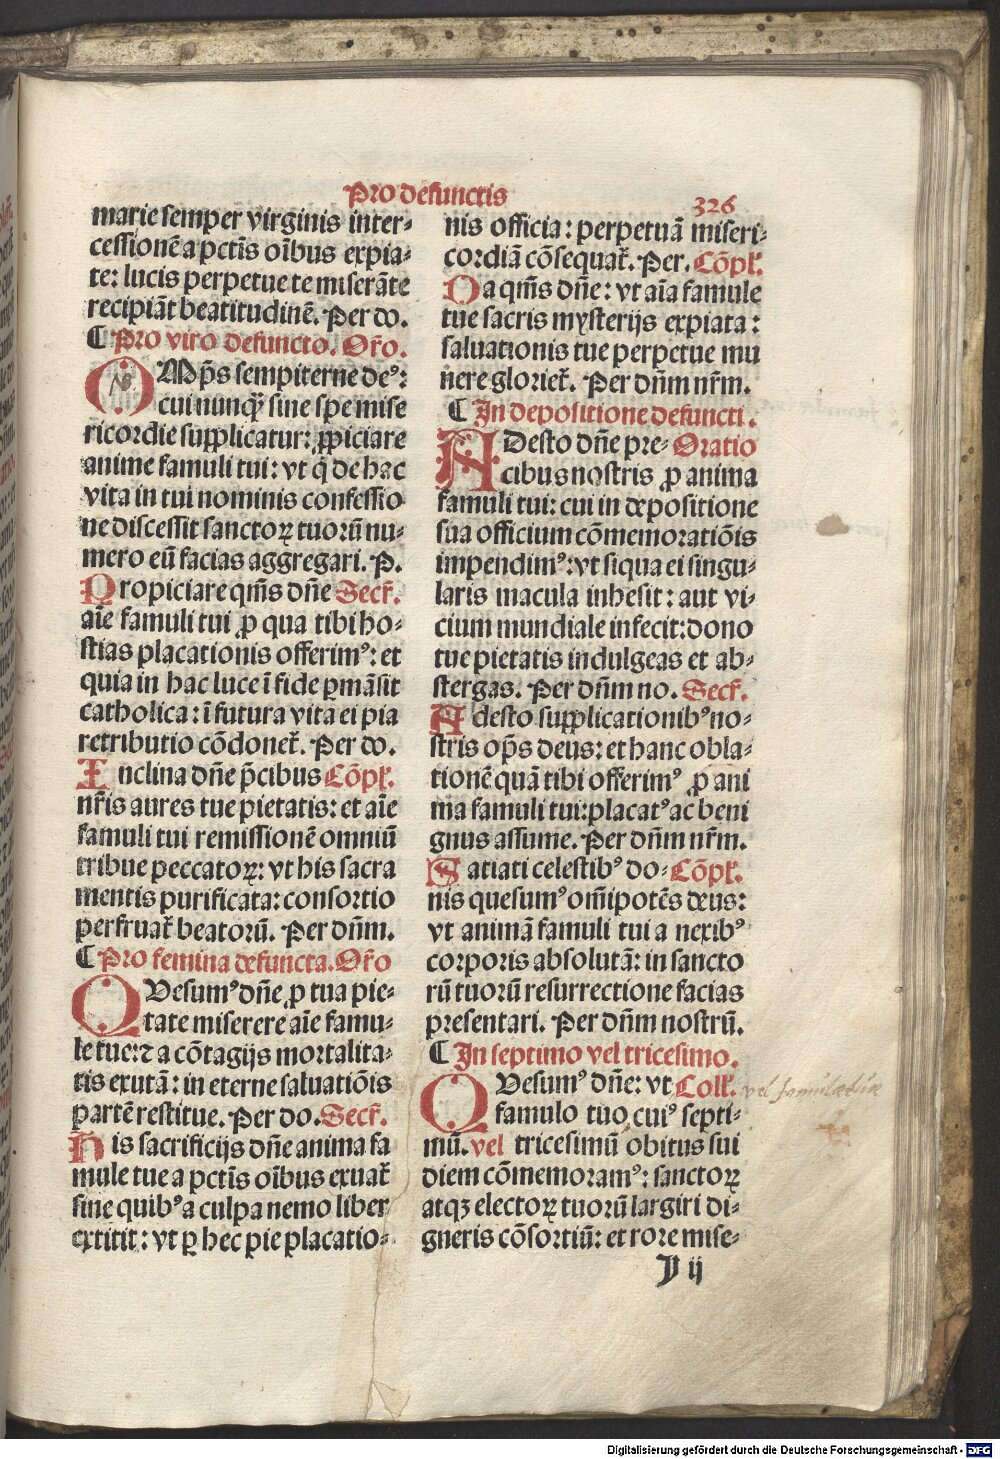 Pro defunctis
326
marie semper virginis inter⸗
cessionē a pctīs oībus expia⸗
te: lucis perpetue te miserāte
recipiāt beatitudinē. Per do.
¶ Pro viro defuncto. Oro.
OMp̄s sempiterne deꝰ:
cui nunqꝫ sine spe mise
ricordie supplicatur: ꝓpiciare
anime famuli tui: vt q̄ de hac
vita in tui nominis confessio
ne discessit sanctoꝝ tuorū nu⸗
mero eū facias aggregari. P.
Propiciare qm̄s dn̄e Secr̄.
aīe famuli tui ꝓ qua tibi ho⸗
stias placationis offerimꝰ: et
quia in hac luce ī fide ꝑmāsit
catholica: ī futura vita ei pia
retributio cōdonet̄. Per do.
Inclina dn̄e p̄cibus Cōpl̄.
nr̄is aures tue pietatis: et aīe
famuli tui remissionē omniū
tribue peccatoꝝ: vt his sacra
mentis purificata: consortio
perfruat̄ beatorū. Per dn̄m.
¶ Pro femina defuncta. Or̄o
QVesumꝰ dn̄e ꝓ tua pie⸗
tate miserere aīe famu⸗
le tue: ⁊ a cōtagijs mortalita⸗
tis exutā: in eterne saluatiōis
partē restitue. Per do. Secr̄.
His sacrificijs dn̄e anima fa
mule tue a pctīs oībus exuat̄
sine quibꝰ a culpa nemo liber
extitit: vt ꝑ hec pie placatio⸗
nis officia: perpetuā miseri⸗
cordiā cōsequat̄. Per. Cōpl̄.
Da qm̄s dn̄e: vt aīa famule
tue sacris mysterijs expiata:
saluationis tue perpetue mu
nere gloriet̄. Per dn̄m nr̄m.
¶ In depositione defuncti.
ADesto dn̄e pre⸗ Oratio
cibus nostris ꝓ anima
famuli tui: cui in depositione
sua officium cōmemoratiōis
impendimꝰ: vt siqua ei singu⸗
laris macula inhesit: aut vi⸗
cium mundiale infecit: dono
tue pietatis indulgeas et ab⸗
stergas. Per dn̄m no. Secr̄.
Adesto supplicationibꝰ no⸗
stris op̄s deus: et hanc obla⸗
tionē quā tibi offerimꝰ ꝓ ani
ma famuli tui: placatꝰ ac beni
gnus assume. Per dn̄m nr̄m.
Satiati celestibꝰ do⸗ Cōpl̄.
nis quesumꝰ om̄ipotēs deus:
vt animā famuli tui a nexibꝰ
corporis absolutā: in sancto
rū tuorū resurrectione facias
presentari. Per dn̄m nostrū.
¶ In septimo vel tricesimo.
QVesumꝰ dn̄e: vt Coll̄.
famulo tuo cuiꝰ septi⸗
mū. vel tricesimū obitus sui
diem cōmemoramꝰ: sanctoꝝ
atqꝫ electoꝝ tuorū largiri di⸗
gneris cōsortiū: et rore mise⸗
V ij
vel famulabus
Digitalisierung gefördert durch die Deutsche Forschungsgemeinschaft - DFG